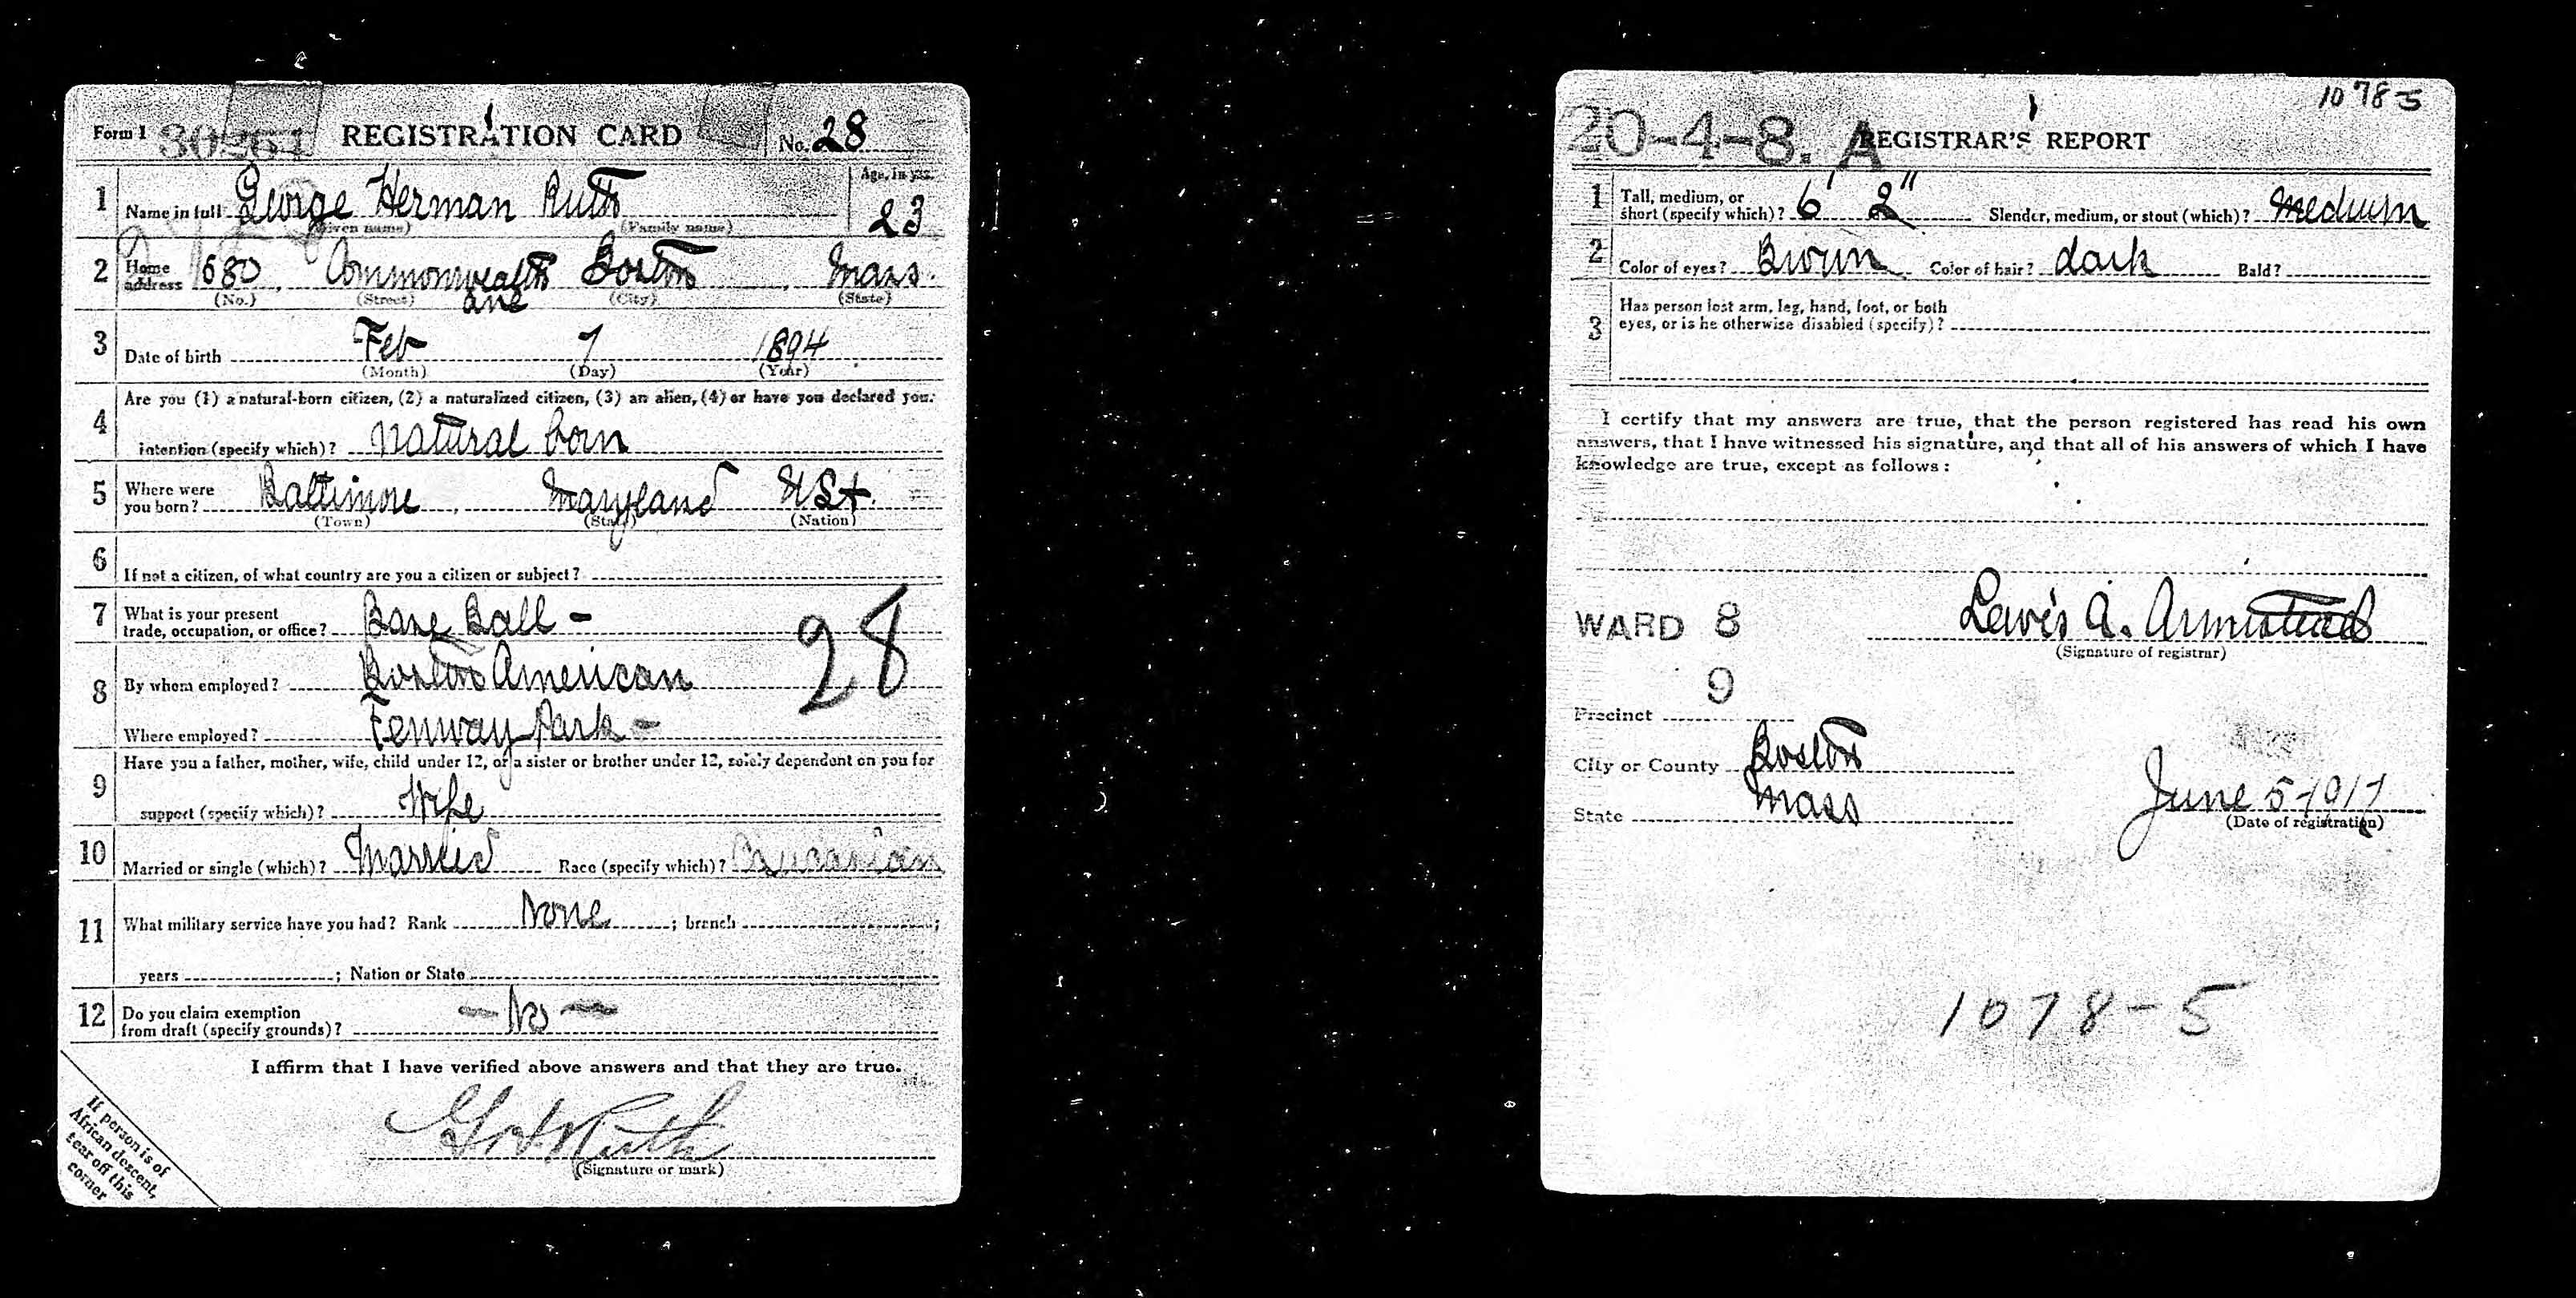 Form 1 REGISTRATION CARD No. 28
1 Name in full George Herman Ruth Age, in yrs. 23
(Given name) (Family name)
2 Home address 680 Commonwealth Ave Boston, Mass.
(No.) (Street) (City) (State)
3 Date of birth Feb 7 1894
(Month) (Day) (Year)
4 Are you (1) a natural-born citizen, (2) a naturalized citizen, (3) an alien, (4) or have you declared your
intention (specify which)? natural born
5 Where were you born? Baltimore, Maryland USA.
(Town) (State) (Nation)
6 If not a citizen, of what country are you a citizen or subject?
7 What is your present
trade, occupation, or office? Base Ball -
8 By whom employed? Boston American
28
Where employed? Fenway Park -
9 Have you a father, mother, wife, child under 12, or a sister or brother under 12, solely dependent on you for
support (specify which)? Wife
10 Married or single (which)? Married Race (specify which)? Caucasian
11 What military service have you had? Rank None; branch ;
years ; Nation or State
12 Do you claim exemption
from draft (specify grounds)? - No -
I affirm that I have verified above answers and that they are true.
G H Ruth
(Signature or mark)
If person is of
African descent,
tear off this
corner
1078-5
20-4-8. A REGISTRAR'S REPORT
1 Tall, medium, or
short (specify which)? 6' 2" Slender, medium, or stout (which)? Medium
2 Color of eyes? Brown Color of hair? dark Bald?
3 Has person lost arm, leg, hand, foot, or both
eyes, or is he otherwise disabled (specify)?
I certify that my answers are true, that the person registered has read his own
answers, that I have witnessed his signature, and that all of his answers of which I have
knowledge are true, except as follows:
Lewis A. Armistead
(Signature of registrar)
WARD 8
Precinct 9
City or County Boston
State Mass
June 5-1917
(Date of registration)
1078-5